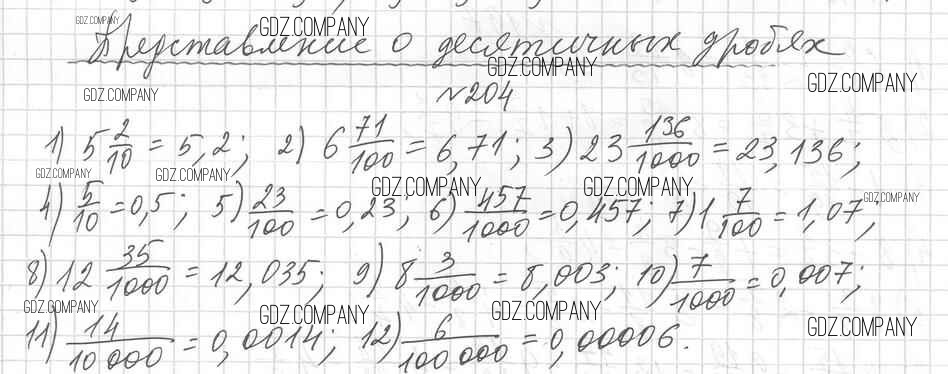 Представление о десятичных дробях
№204
1) 5 2/10 = 5,2; 2) 6 71/100 = 6,71; 3) 23 136/1000 = 23,136;
4) 5/10 = 0,5; 5) 23/100 = 0,23; 6) 457/1000 = 0,457; 7) 1 7/100 = 1,07;
8) 12 35/1000 = 12,035; 9) 8 3/1000 = 8,003; 10) 7/1000 = 0,007;
11) 14/10 000 = 0,0014; 12) 6/100 000 = 0,00006.
GDZ.COMPANY
GDZ.COMPANY
GDZ.COMPANY
GDZ.COMPANY
GDZ.COMPANY
GDZ.COMPANY
GDZ.COMPANY
GDZ.COMPANY
GDZ.COMPANY
GDZ.COMPANY
GDZ.COMPANY
GDZ.COMPANY
GDZ.COMPANY
GDZ.COMPANY